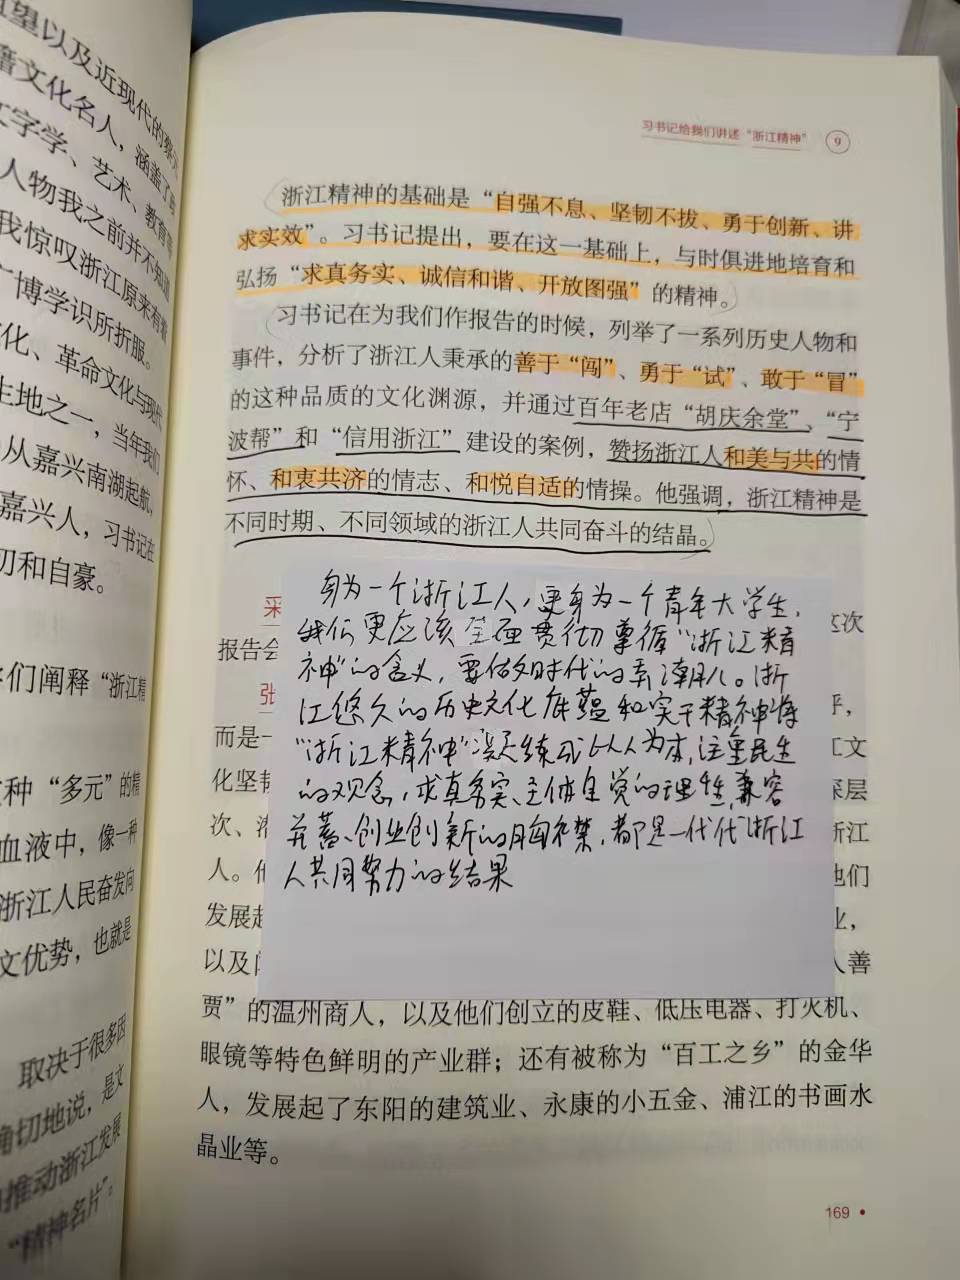 望以及近现代的蔡元
籍文化名人，涵盖了
文字学、艺术、教育等
人物我之前并不知道
我惊叹浙江原来有着
广博学识所折服。
化、革命文化与现代
生地之一，当年我们
从嘉兴南湖起航，
嘉兴人，习书记在
切和自豪。
们阐释“浙江精
种“多元”的精
血液中，像一种
浙江人民奋发向
文优势，也就是
取决于很多因
确切地说，是文
推动浙江发展
“精神名片”。
习书记给我们讲述“浙江精神” 9
浙江精神的基础是“自强不息、坚韧不拔、勇于创新、讲
求实效”。习书记提出，要在这一基础上，与时俱进地培育和
弘扬“求真务实、诚信和谐、开放图强”的精神。
习书记在为我们作报告的时候，列举了一系列历史人物和
事件，分析了浙江人秉承的善于“闯”、勇于“试”、敢于“冒”
的这种品质的文化渊源，并通过百年老店“胡庆余堂”、“宁
波帮”和“信用浙江”建设的案例，赞扬浙江人和美与共的情
怀、和衷共济的情志、和悦自适的情操。他强调，浙江精神是
不同时期、不同领域的浙江人共同奋斗的结晶。
采 这次
报告会
张 平，
而是一 江文
化坚韧 深层
次、 浙江
人。 他们
发展起 业，
以及 人善
身为一个浙江人，更身为一个青年大学生，
我们更应该全面贯彻遵循“浙江精
神”的含义，要做好时代的弄潮儿。浙
江悠久的历史文化底蕴和实干精神将
“浙江精神”凝练成以人为本，注重民生
的观念，求真务实、主体自觉的理性，兼容
并蓄、创业创新的胸襟，都是一代代浙江
人共同努力的结果
贾”的温州商人，以及他们创立的皮鞋、低压电器、打火机、
眼镜等特色鲜明的产业群；还有被称为“百工之乡”的金华
人，发展起了东阳的建筑业、永康的小五金、浦江的书画水
晶业等。
169